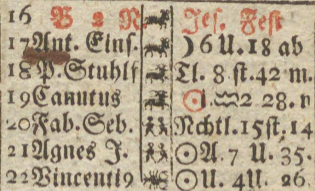 16 B 2 N. Jes. Fest
17 Ant. Eins. ☽ 6 U. 18 ab
18 P. Stuhlf Tl. 8 st. 42 m.
19 Canutus ☉ i. ♒ 2 28. n
20 Fab. Seb. Nchtl. 15 st. 14
21 Agnes J. ☉ A. 7 U. 35.
22 Vincenti9 ☉ U. 4 U. 26